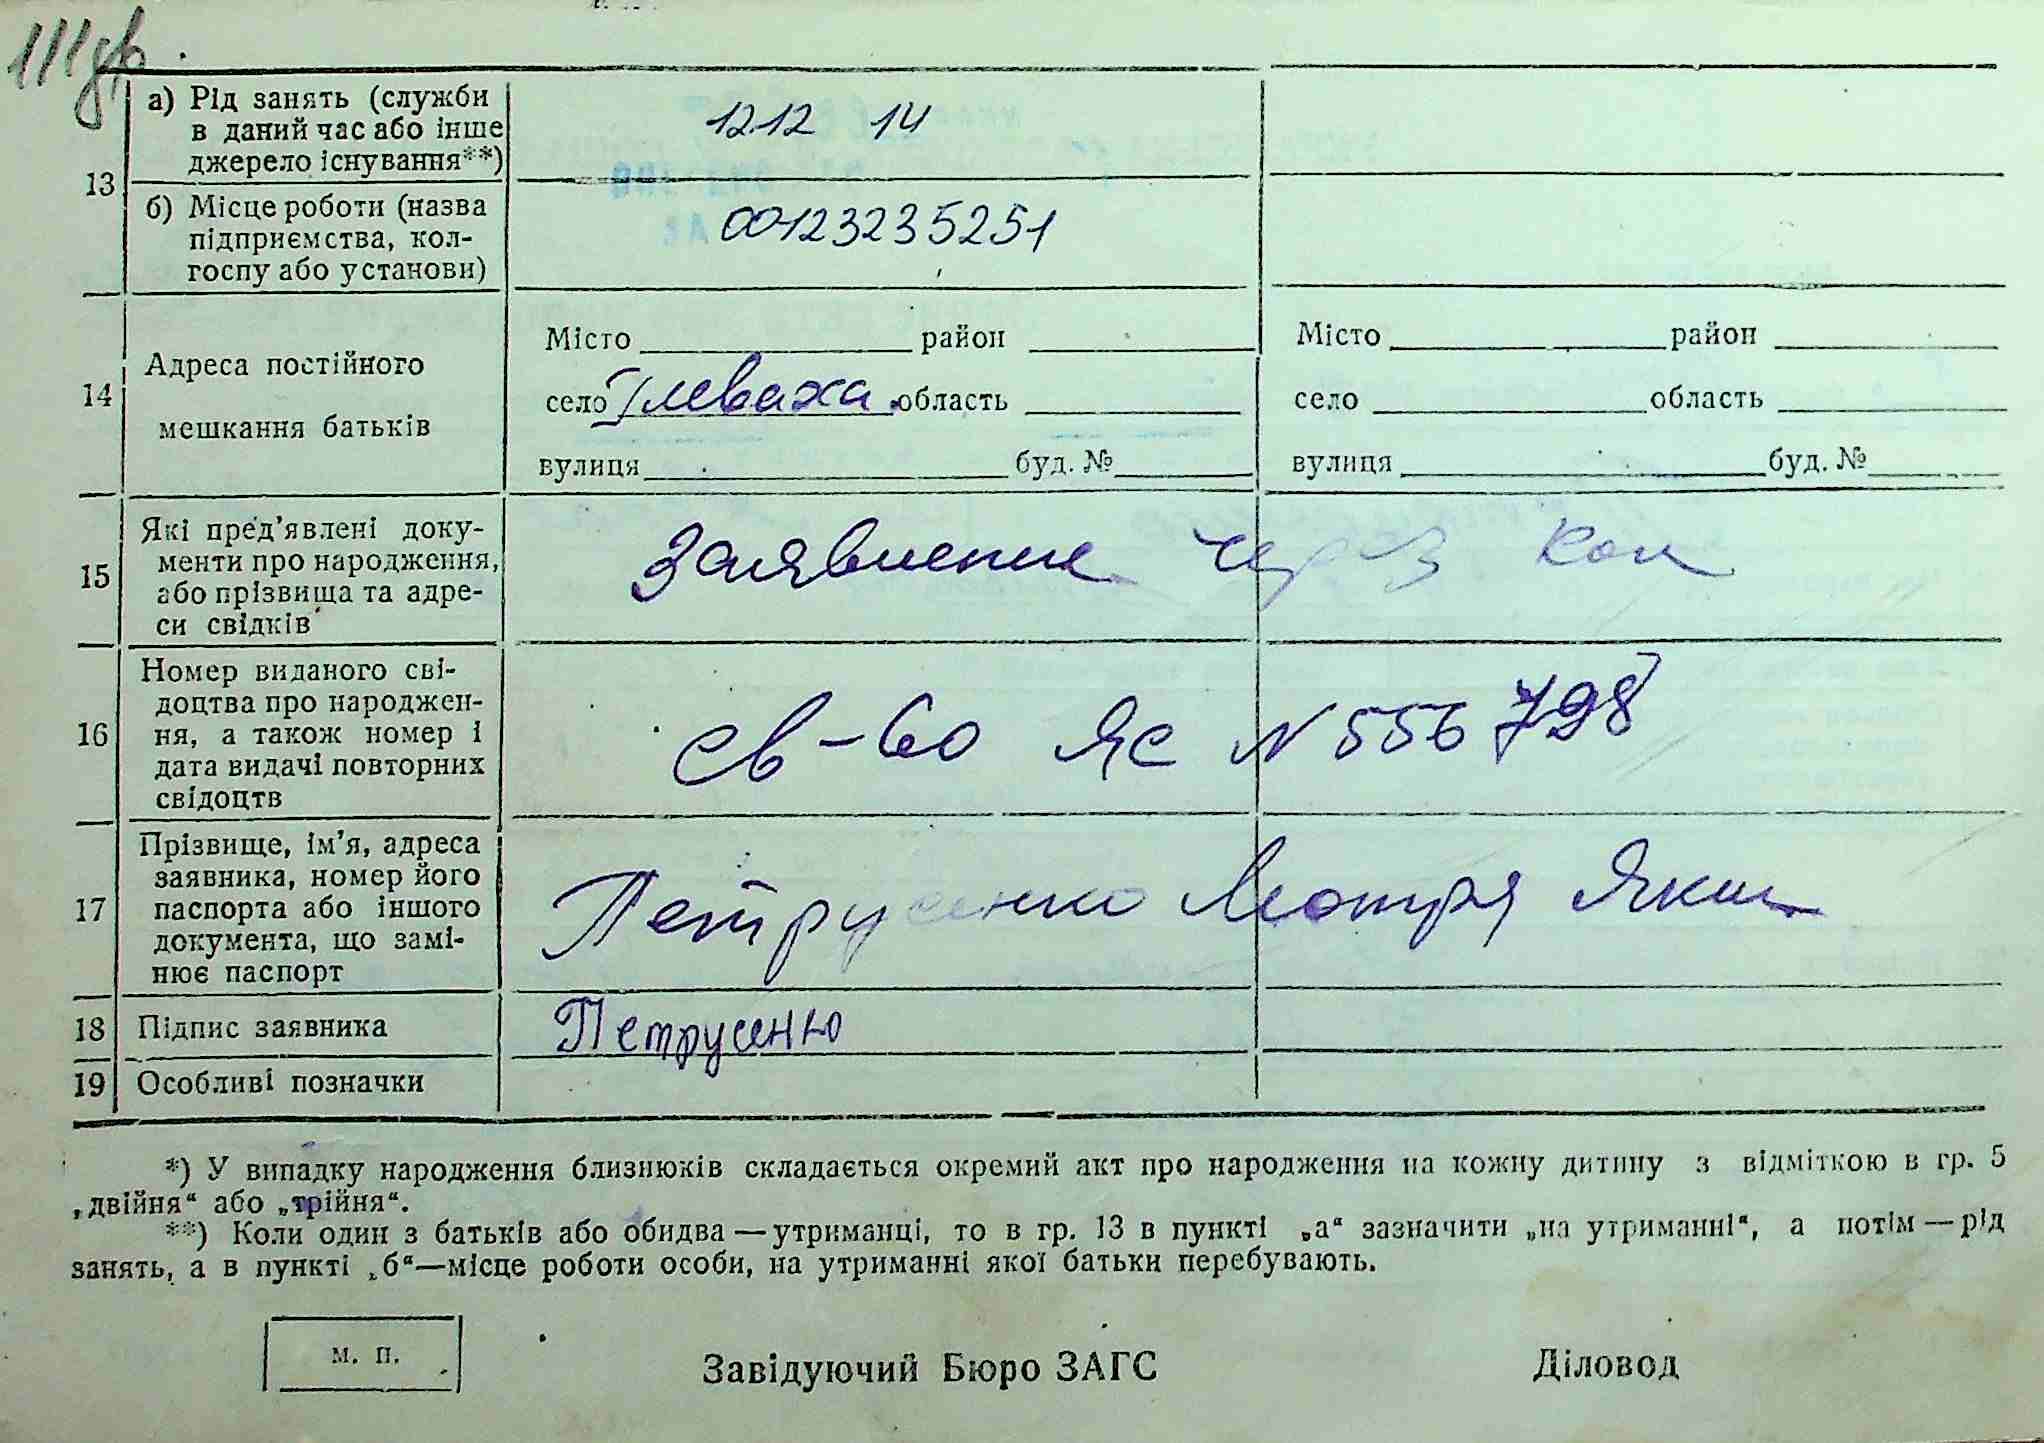 13
а) Рід занять (служби
в даний час або інше
джерело існування**)
1212 14
б) Місце роботи (назва
підприємства, кол-
госпу або установи)
00123235251
14
Адреса постійного
мешкання батьків
Місто район
село Глеваха область
вулиця буд. №
Місто район
село область
вулиця буд. №
15
Які пред’явлені доку-
менти про народження,
або прізвища та адре-
си свідків
Заявление через кол
16
Номер виданого сві-
доцтва про народжен-
ня, а також номер і
дата видачі повторних
свідоцтв
св-во Яс N 556798
17
Прізвище, ім’я, адреса
заявника, номер його
паспорта або іншого
документа, що замі-
нює паспорт
Петрусенко Мотря Яким
18
Підпис заявника
Петрусенко
19
Особливі позначки
*) У випадку народження близнюків складається окремий акт про народження на кожну дитину з відміткою в гр. 5
„двійня“ або „трійня“.
**) Коли один з батьків або обидва — утриманці, то в гр. 13 в пункті „а“ зазначити „на утриманні“, а потім — рід
занять, а в пункті „б“—місце роботи особи, на утриманні якої батьки перебувають.
м. п.
Завідуючий Бюро ЗАГС
Діловод